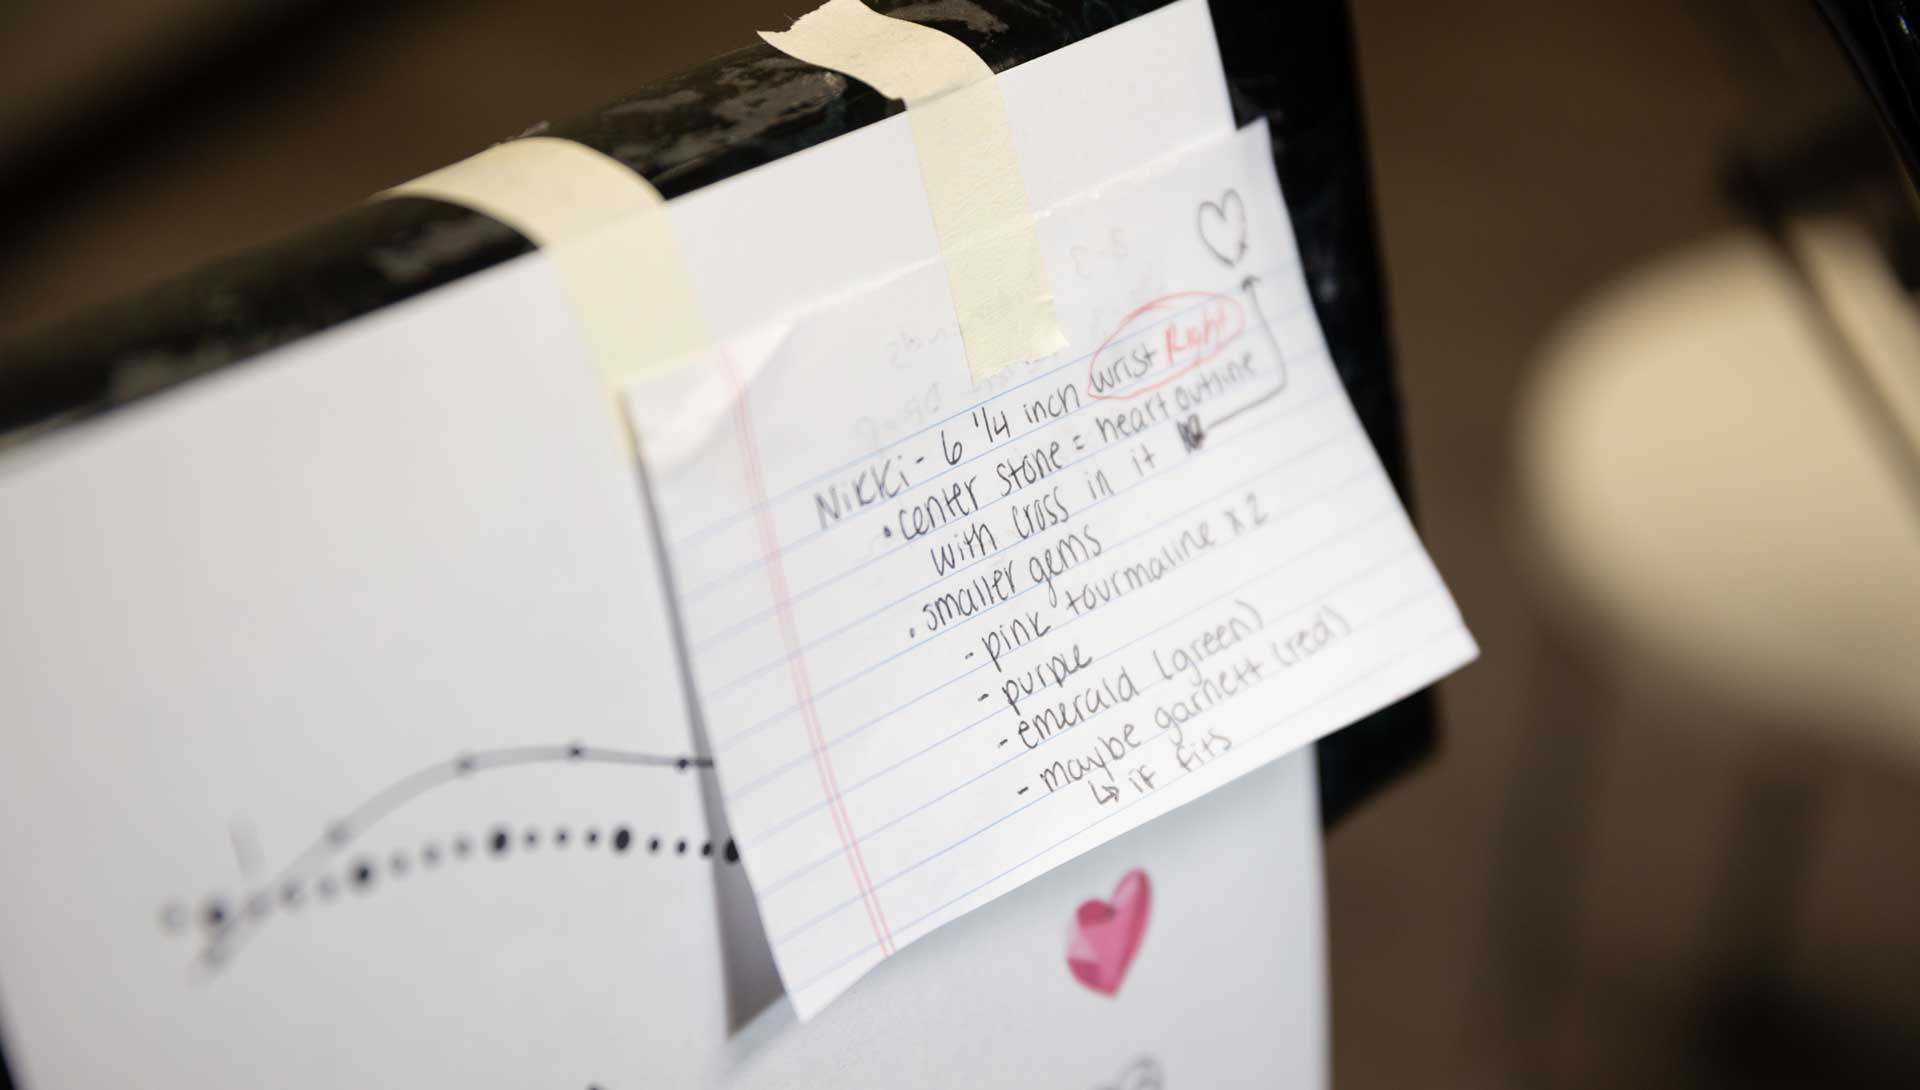 Nikki - 6 1/4 inch wrist Right
• center stone = heart outline
with cross in it
• smaller gems
- pink tourmaline x 2
- purple
- emerald (green)
- maybe garnett (red)
↳ if fits